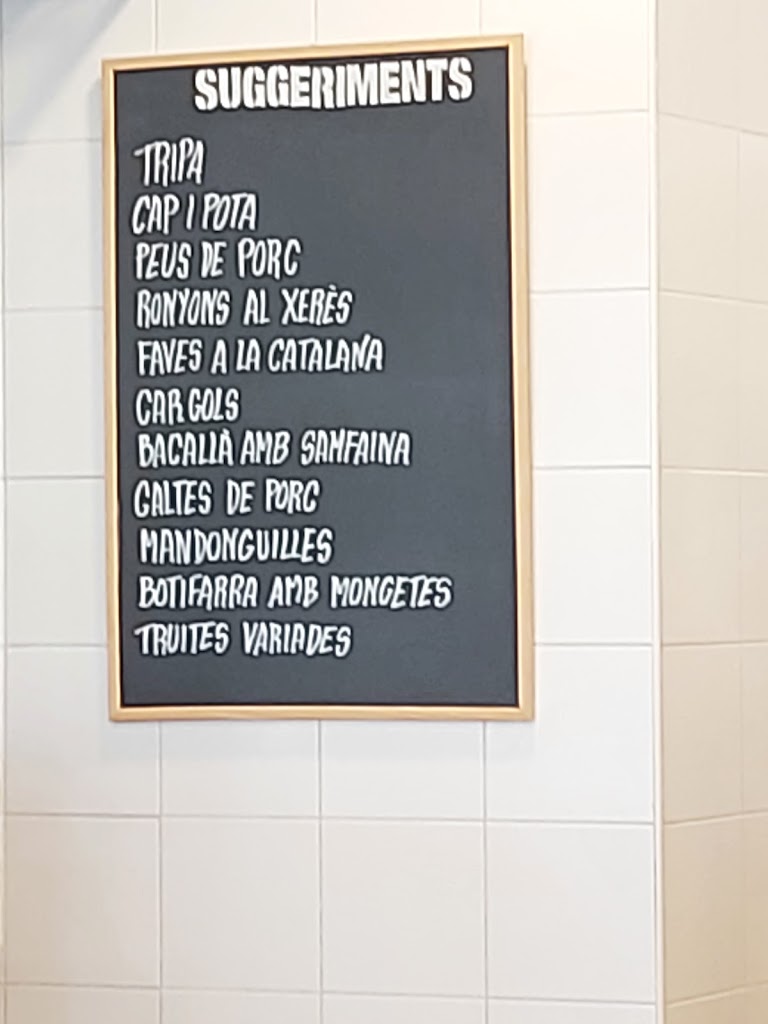 SUGGERIMENTS
TRIPA
CAP I POTA
PEUS DE PORC
RONYONS AL XERÈS
FAVES A LA CATALANA
CARGOLS
BACALLÀ AMB SAMFAINA
GALTES DE PORC
MANDONGUILLES
BOTIFARRA AMB MONGETES
TRUITES VARIADES